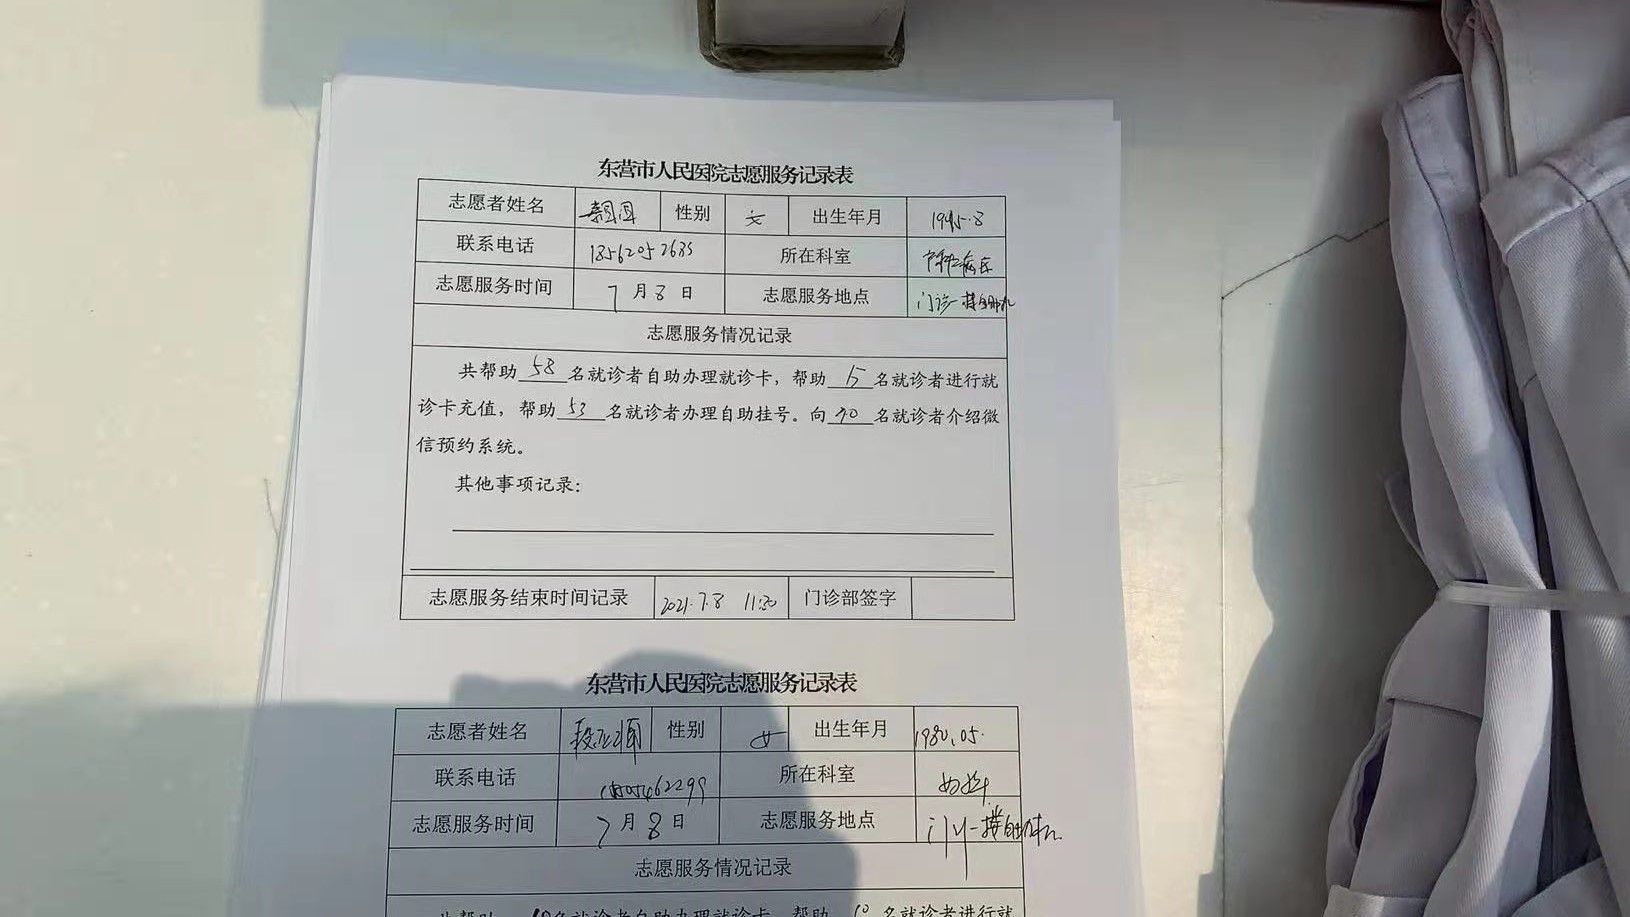 东营市人民医院志愿服务记录表
志愿者姓名 性别 女 出生年月 1995.8
联系电话 18562052635 所在科室
志愿服务时间 7月8日 志愿服务地点 门诊一楼自助机
志愿服务情况记录
共帮助58名就诊者自助办理就诊卡，帮助15名就诊者进行就
诊卡充值，帮助53名就诊者办理自助挂号。向90名就诊者介绍微
信预约系统。
其他事项记录：
志愿服务结束时间记录 2021.7.8 11:30 门诊部签字
东营市人民医院志愿服务记录表
志愿者姓名 性别 女 出生年月 1980.05.
联系电话 所在科室
志愿服务时间 7月8日 志愿服务地点 门诊一楼自助机
志愿服务情况记录
共帮助10名就诊者自助办理就诊卡，帮助10名就诊者进行就